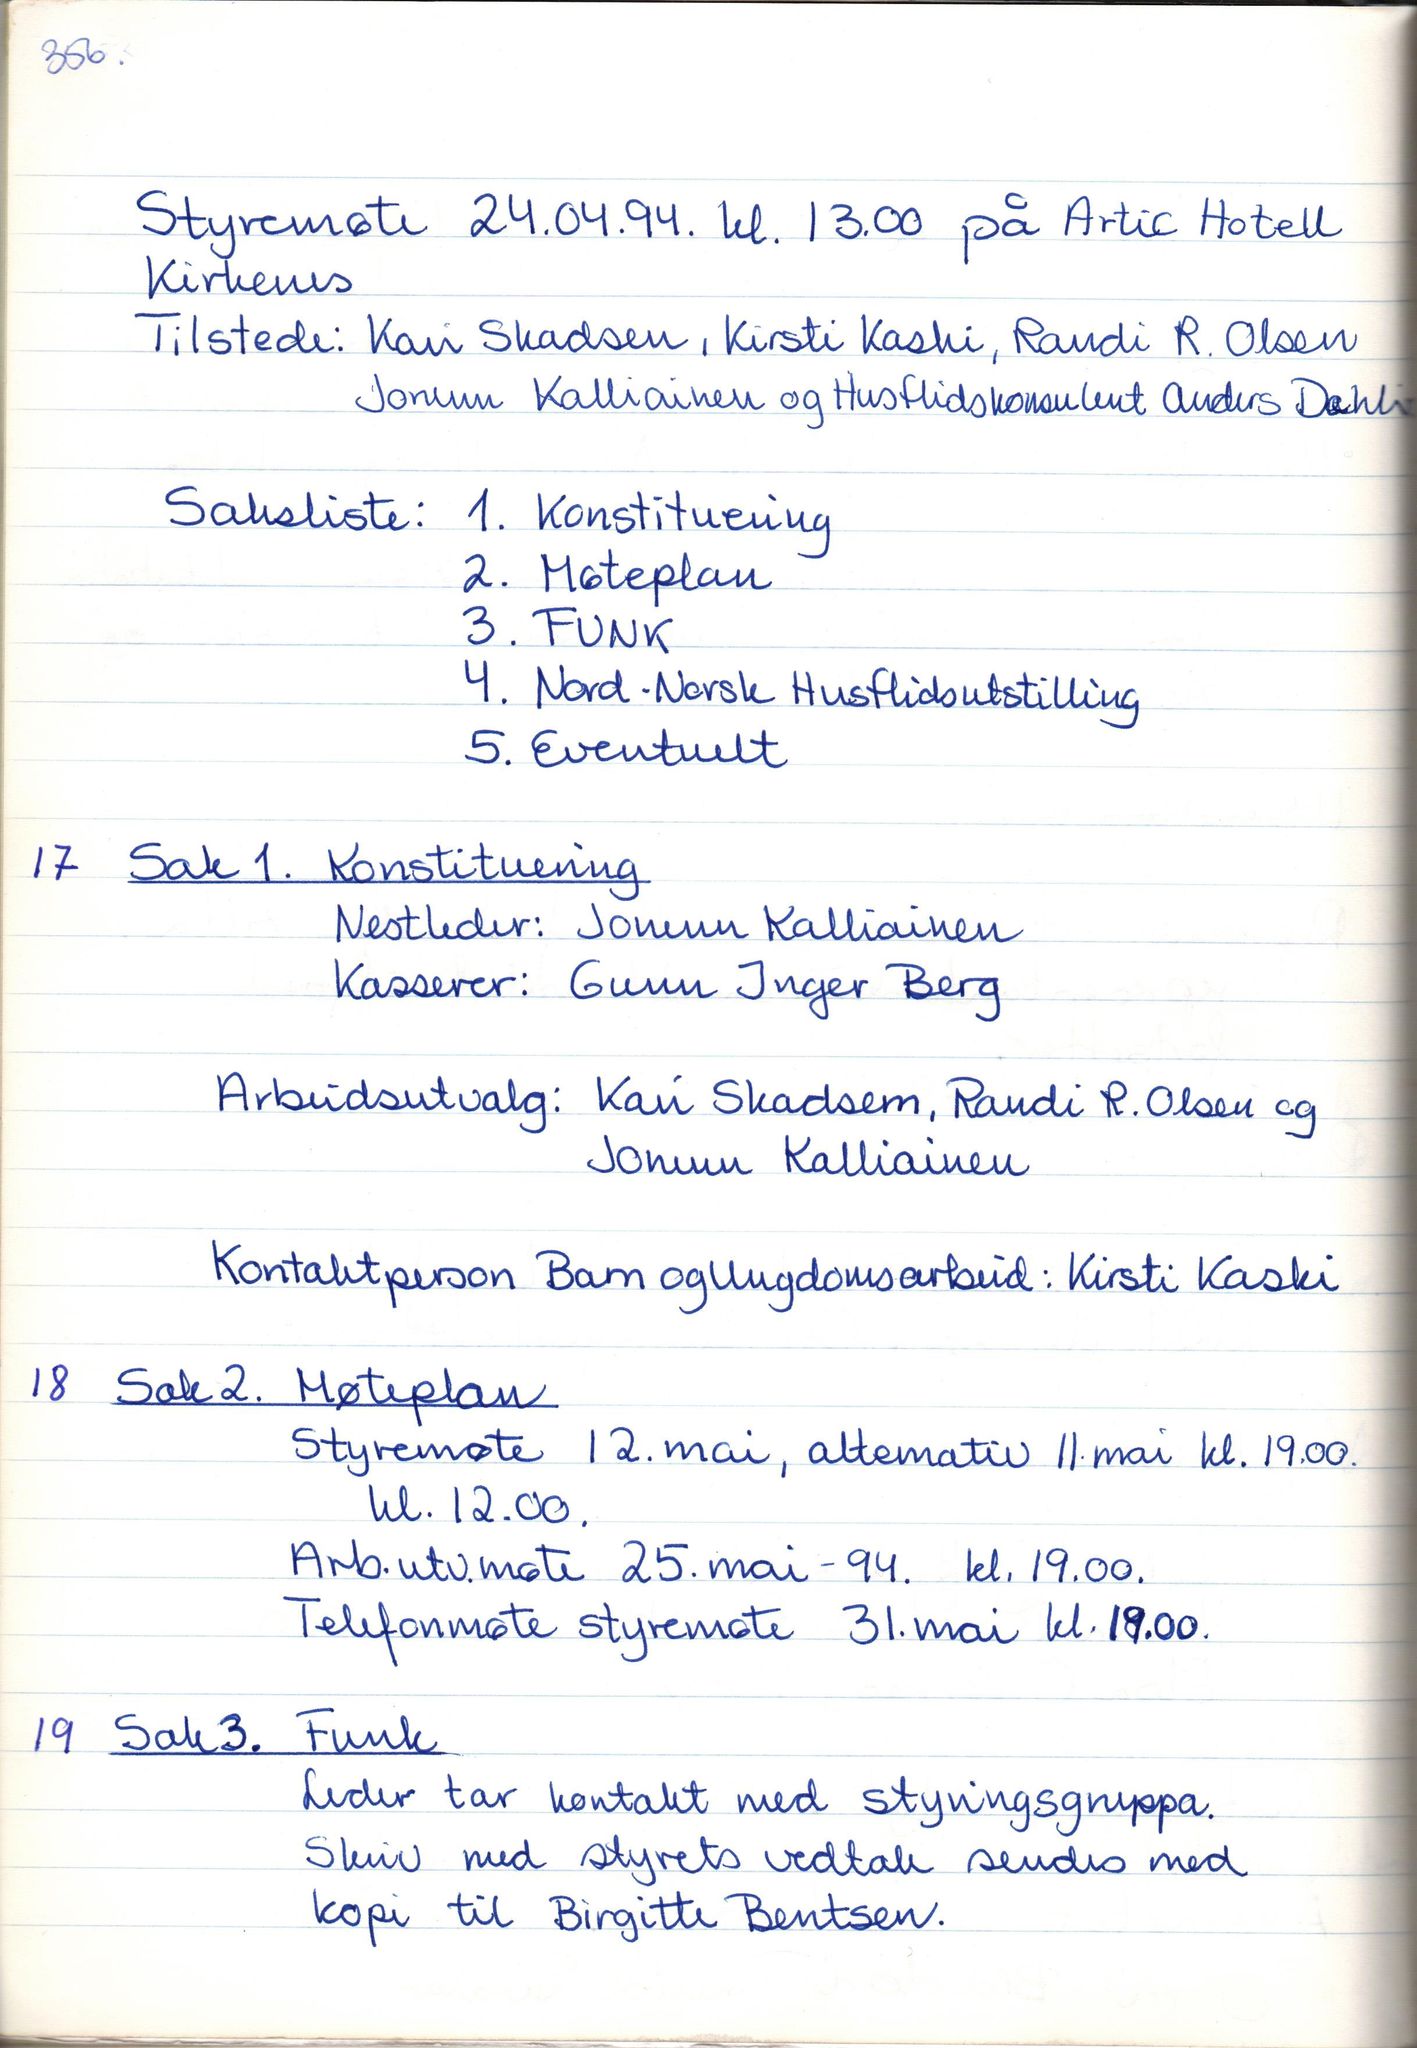 356.
Styremøte 24.04.94. kl. 13.00 på Artic Hotell
Kirkenes
Tilstede: Kari Skadsen, Kirsti Kaski, Randi R. Olsen
Jorunn Kalliainen og Husflidskonsulent Anders Dahli
Saksliste: 1. Konstituering
2. Møteplan
3. FUNK
4. Nord-Norsk Husflidsutstilling
5. Eventuelt
17 Sak 1. Konstituering
Nestleder: Jorunn Kalliainen
Kasserer: Gunn Inger Berg
Arbeidsutvalg: Kari Skadsem, Randi R. Olsen og
Jorunn Kalliainen
Kontaktperson Barn og Ungdomsarbeid: Kirsti Kaski
18 Sak 2. Møteplan
Styremøte 12. mai, alternativ 11. mai kl. 19.00.
kl. 12.00.
Arb.utv.møte 25. mai - 94. kl. 19.00.
Telefonmøte styremøte 31. mai kl. 19.00.
19 Sak 3. Funk
Leder tar kontakt med styringsgruppa.
Skriv med styrets vedtak sendes med
kopi til Birgitte Bentsen.